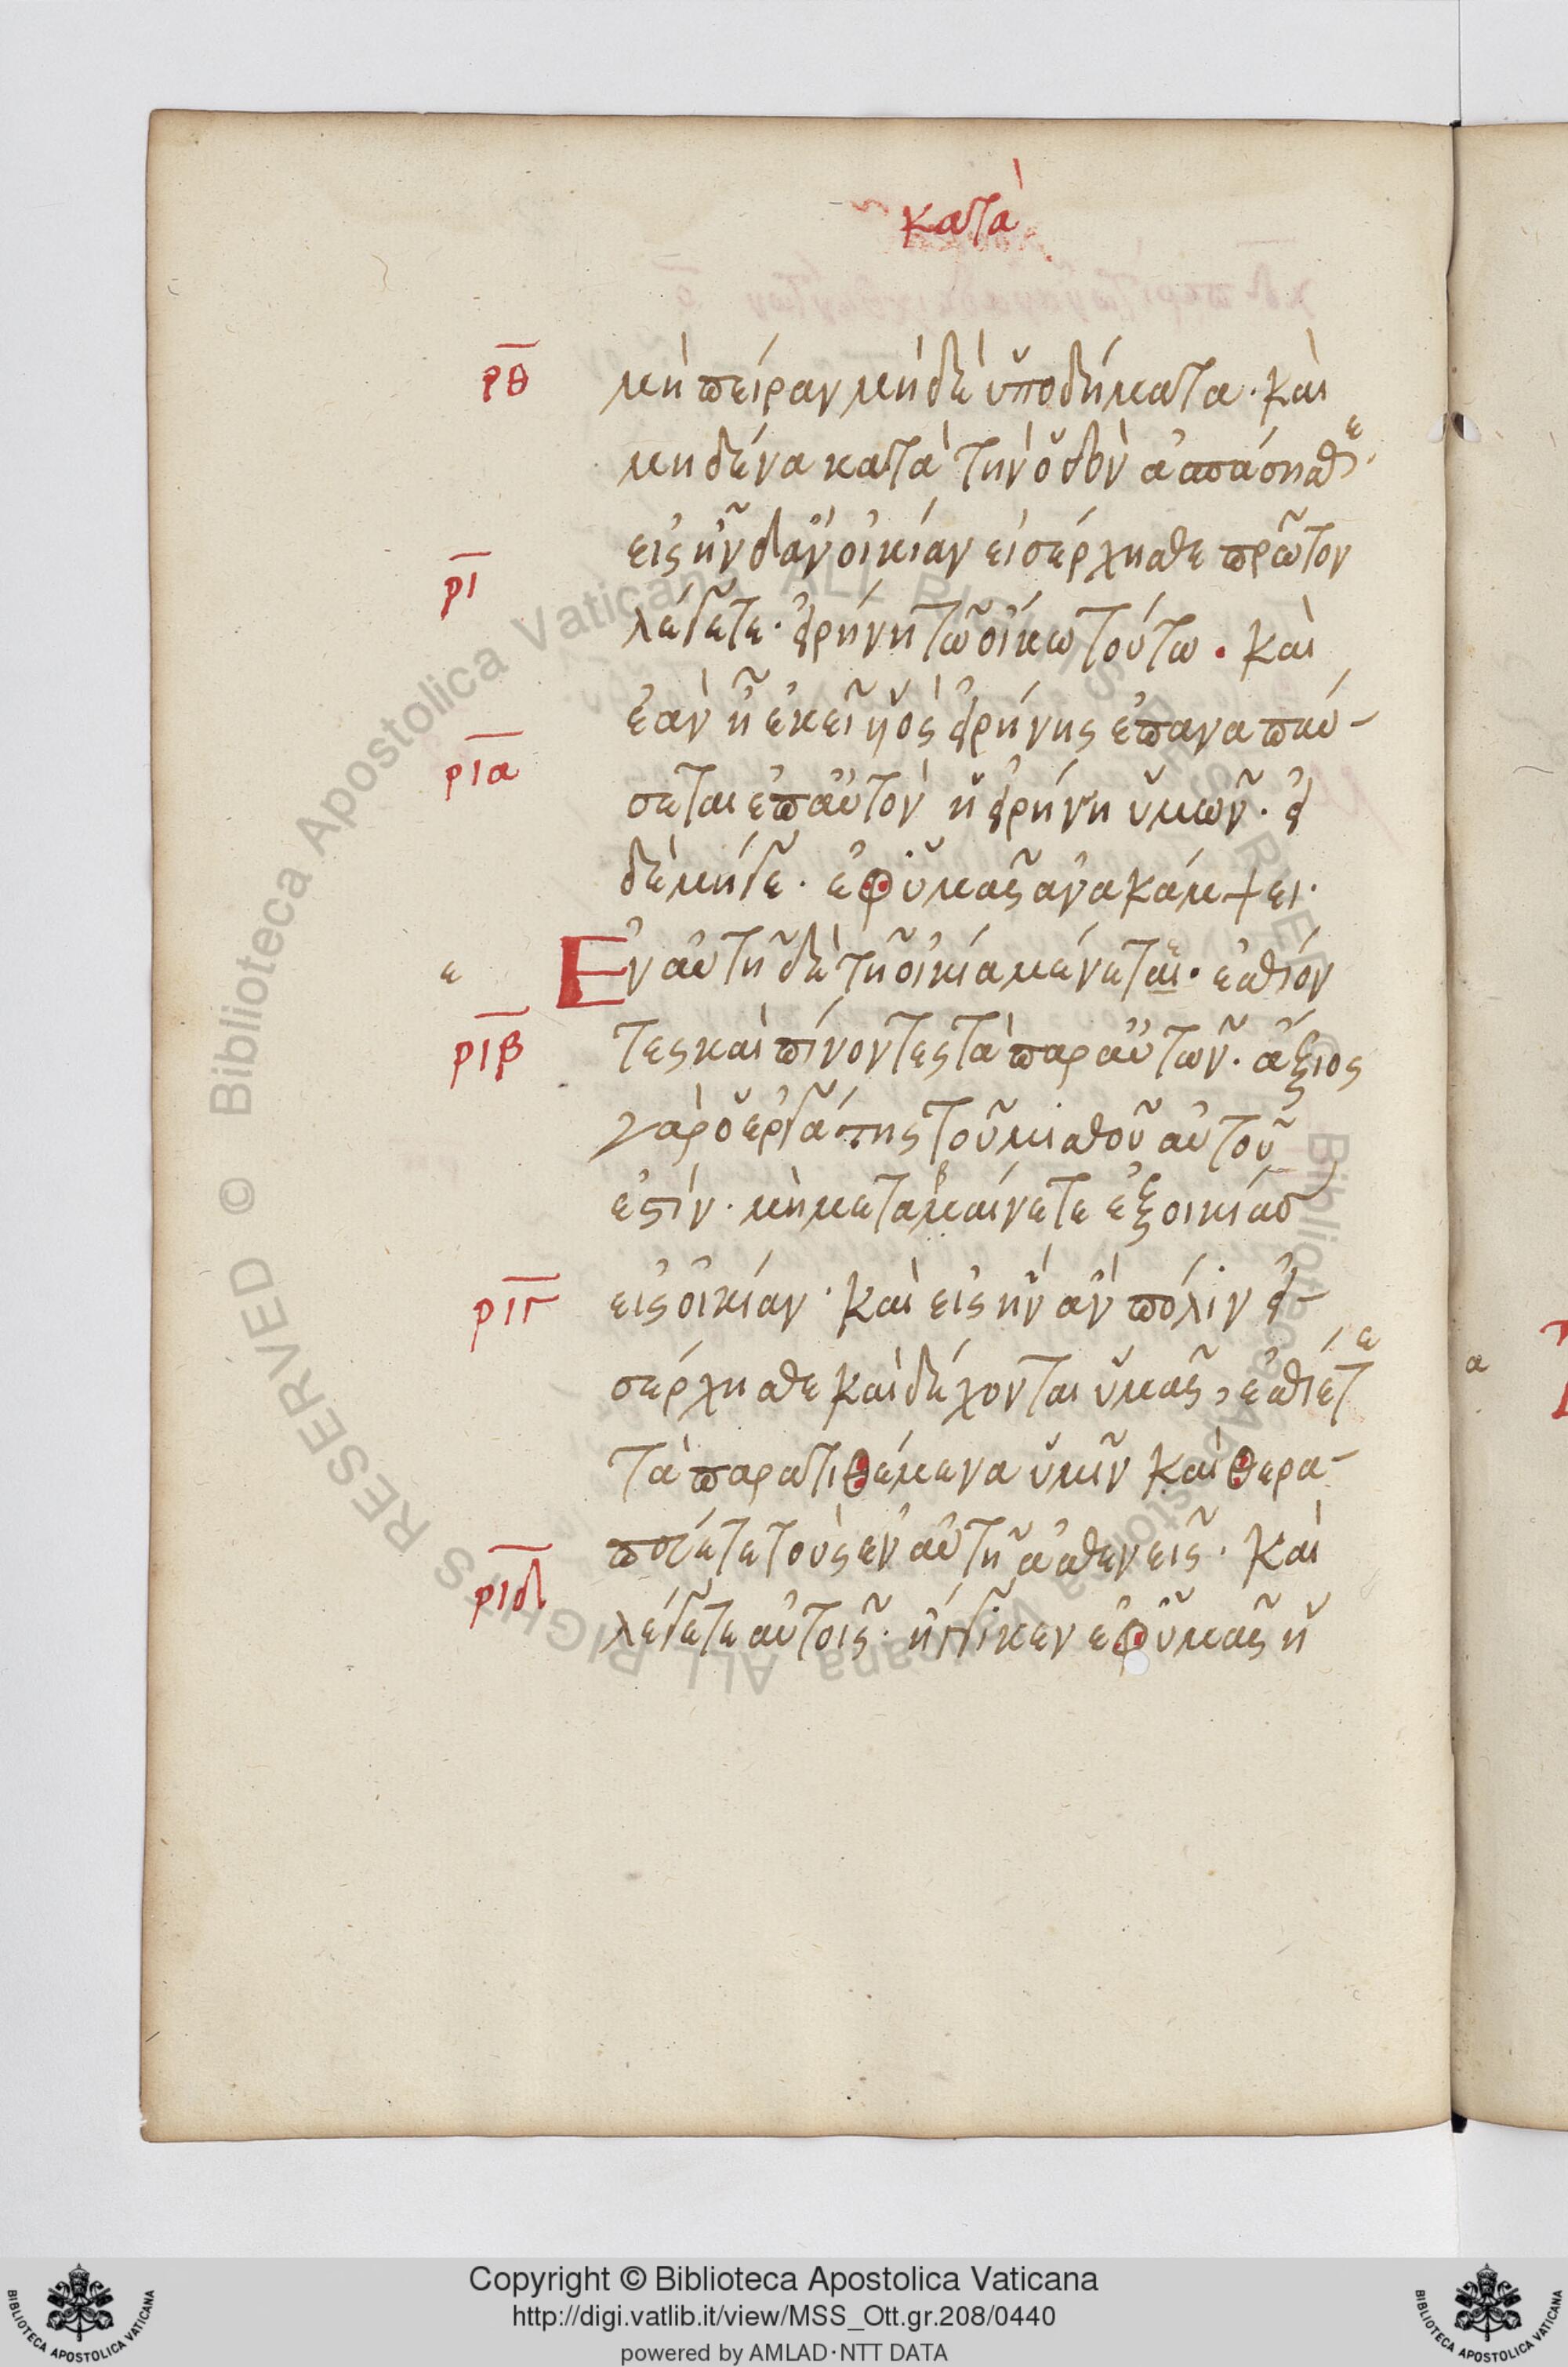 κατὰ
ρθ
μὴ πείραν μὴ δὲ ὑποδήματα· καὶ
μηδένα κατὰ τὴν ὁδὸν ἀσπάσησθε·
εἰς ἣν δἂν οἰκίαν εἰσέρχησθε πρῶτον
ρι
λέγετε· εἰρήνη τῶ οἴκω τούτω· καὶ
ἐὰν ἦ ἐκεῖ υἱὸς εἰρήνης ἐπαναπαύ-
ρια
σεται ἐπ αὐτὸν ἡ εἰρήνη ὑμῶν· εἰ
δὲ μήγε· ἐφ ὑμᾶς ἀνακάμψει·
ε
Ἐν αὐτῆ δὲ τῆ οἰκία μένεται· ἐσθίον
ριβ
τες καὶ πίνοντες τὰ παρ αὐτῶν· ἄξιος
γὰρ ὁ ἐργάτης τοῦ μισθοῦ αὐτοῦ
ἐστίν· μὴ μεταβαίνετε ἐξ οἰκίασ
ριγ
εἰς οἰκίαν· καὶ εἰς ἣν ἂν πόλιν εἰ-
σέρχησθε καὶ δέχονται ὑμᾶς, ἐσθίετε
α
τὰ παρατιθέμενα ὑμῖν καὶ θερα-
πεύετε τοὺς ἐν αὐτῆ ἀσθενεῖς· καὶ
ριδ
λέγετε αὐτοῖς· ἤγγικεν ἐφ ὑμᾶς ἡ
© Biblioteca Apostolica Vaticana ALL RIGHTS RESERVED
© Biblioteca Apostolica Vaticana ALL RIGHTS RESERVED
Copyright © Biblioteca Apostolica Vaticana
http://digi.vatlib.it/view/MSS_Ott.gr.208/0440
powered by AMLAD·NTT DATA
BIBLIOTECA APOSTOLICA VATICANA
BIBLIOTECA APOSTOLICA VATICANA